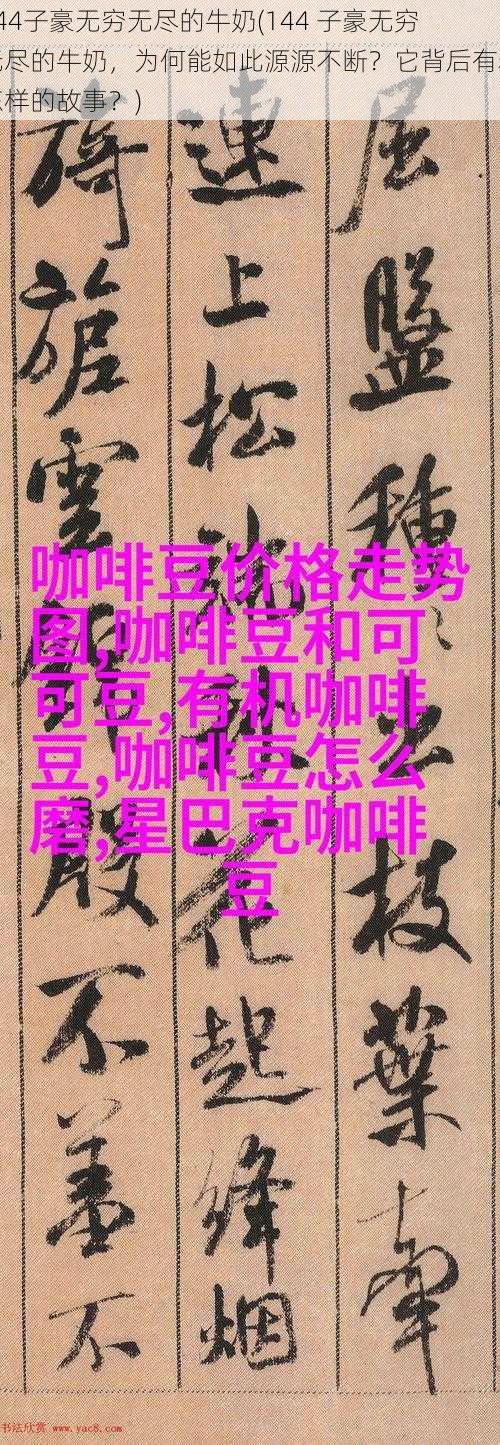 44子豪无穷无尽的牛奶(144 子豪无穷
无尽的牛奶，为何能如此源源不断？它背后有着
怎样的故事？)
屈盤種〻出枝葉牽
連上松端秋花起絳烟
旖旎雲錦殷不羞不
咖啡豆价格走势
图,咖啡豆和可
可豆,有机咖啡
豆,咖啡豆怎么
磨,星巴克咖啡
豆
书法欣赏 www.yac8.com